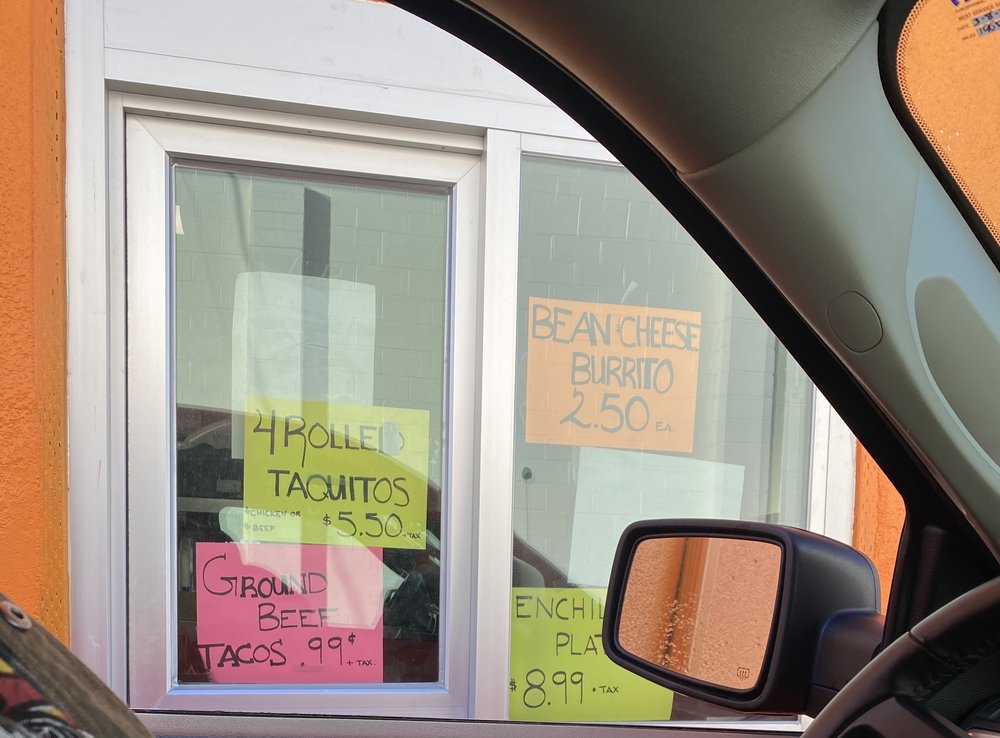 4 ROLLED
TAQUITOS
CHICKEN OR
BEEF
$5.50 + TAX
GROUND
BEEF
TACOS .99¢ + TAX
BEAN + CHEESE
BURRITO
2.50 EA.
ENCHIL
PLA
$8.99 + TAX